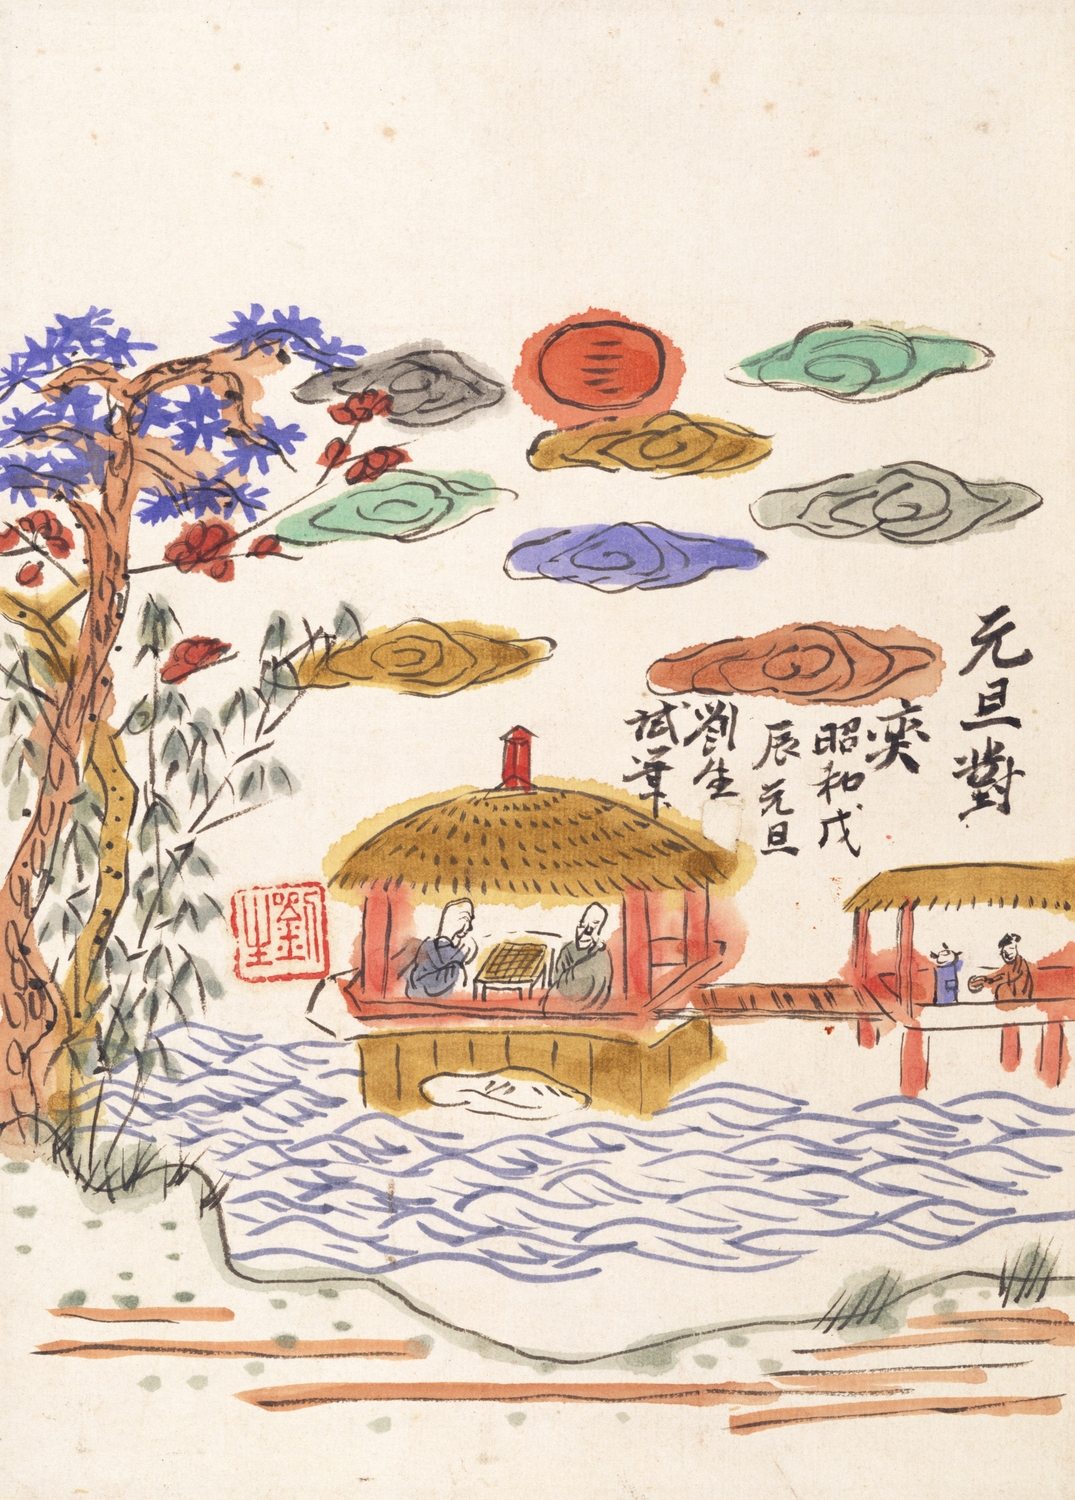 元旦對
奕
昭和戊
辰元旦
劉生
試筆
劉生